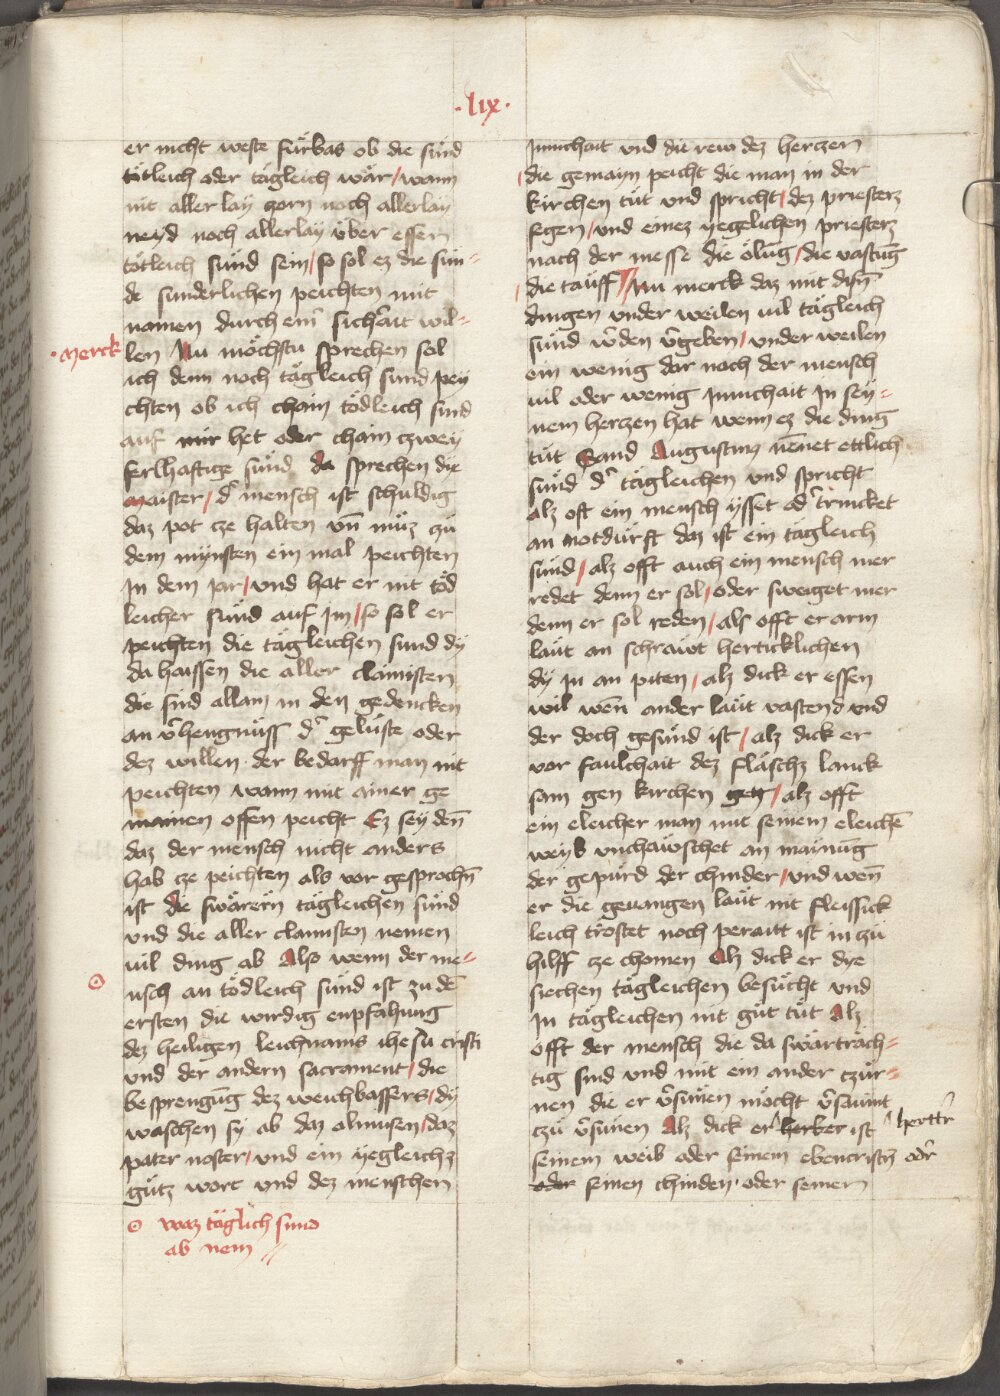 ·lix·
er nicht weste fürbas ob die sünd
tötleich oder tägleich wär / wann
nit aller lay zorn noch allerlay
neyd noch allerlay über essen
tötleich sünd sein / so sol ez die sün=
de sunderlichen peichten mit
namen durch ein sichͬait wil=
·Merck
len Nu möchstu sprechen sol
ich denn noch tägleich sund pey
chten ob ich chain tödleich sünd
auf mir het oder chain czwey
ferlhaftige sünd da sprechen dye
maister / dͬ mensch ist schuldig
daz pot cze halten vn̄ müz czü
dem mynsten ein mal peichten
In dem jar / und hat er nit töd
leicher sünd auf Im / so sol er
peichten die tägleichen sund dy
da haissen die aller clainisten
die sind allain in den gedencken
an v̄hengnüss dͬ gelüste oder
dez willen · der bedarff man nit
peichten wann mit ainer ge
mainen offen peicht Ez sey den̄
daz der mensch nicht anders
hab cze peichten als vor gesprochn̄
ist die swärern tägleichen sünd
und die aller clainisten nemen
vil ding ab Also wenn der me=
nsch an tödleich sünd ist zu dē
ersten die wirdig enpfahung
dez heiligen leichnams ihesu cristi
und der andern sacrament / die
besprengūg dez weichbassers / dy
waschen sy ab daz almusen / daz
pater noster / und ein yegleichz
gütz wort und dez menschen
☉ waz täglich sund
ab nem
Innichait vnd die rew dez herczen
die gemayn peicht die man in der
kirchen tüt und spricht / dez priesterz
segen / und einez yegelichen priesterz
nach der messe die ölūg / die vastūg
die tauff // Nu merck daz mit disn̄
dingen vnder weilen vil tägleich
sünd w̄den v̄geben / vnder weilen
ein wenig dar nach der mensch
vil oder wenig Innichait In sey=
nem herczen hat wenn ez die ding
tüt Sand Augustiny nēnet ettlich
sünd dͬ tägleichen und spricht
alz oft ein mensch ysset odͬ trincket
an notdürft daz ist ein tägleich
sünd / alz offt auch ein mensch mer
redet denn er sol / oder sweiget mer
denn er sol reden / als offt er arm
läut an schrawt herticklichen
dy In an piten / alz dick er essen
wil wen̄ ander läut vastend und
der doch gesünd ist / alz dick er
vor faulchait dez fläschz lanck
sam gen kirchen get / alz offt
ein eleicher man mit seinem eleichē
weyb vnchäwschet an mainūg
der gepürd der chinder / und wen̄
er die gevangen läut nit fleissick
leich tröstet noch peraitt ist in czü
hilff cze chomen Alz dick er dye
siechen tägleichen besücht und
In tägleichen nit güt tüt Alz
offt der mensch die da swärträch=
tig sind und mit ein ander czür=
nen die er v̄sünen möcht v̄saumt
czü v̄sünen Alz dick er herber ist
herttͬ
seinem weib oder seinem ebencristn̄ odͬ
oder seinen chinden · oder seinen